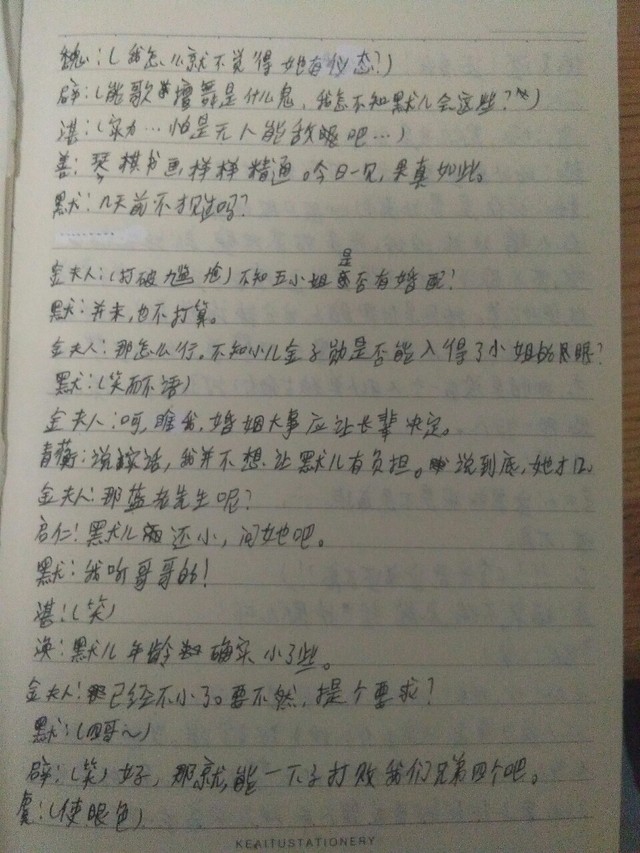 魏:(我怎么就不觉得她有仪态?)
辟:(能歌擅舞是什么鬼,我怎不知默儿会这些?)
湛:(实力…怕是无人能敌眼吧…)
善:琴棋书画,样样精通。今日一见,果真如此。
默:几天前不才见过吗?
………
金夫人:(打破尴尬)不知五小姐是否有婚配?
默:并未,也不打算。
金夫人:那怎么行。不知小儿金子勋是否能入得了小姐的尺眼?
默:(笑而不语)
金夫人:呵,瞧我,婚姻大事应让长辈决定。
青蘅:说嫁话,我并不想让默儿有负担。说到底,她才12。
金夫人:那蓝老先生呢?
启仁:默儿还小,问她吧。
默:我听哥哥的!
湛:(笑)
涣:默儿年龄确实小了些。
金夫人:已经不小了。要不然,提个要求?
默:(四哥~)
辟:(笑)好,那就能一下子打败我们兄弟四个吧。
(使眼色)
KEAITUSTATIONERY